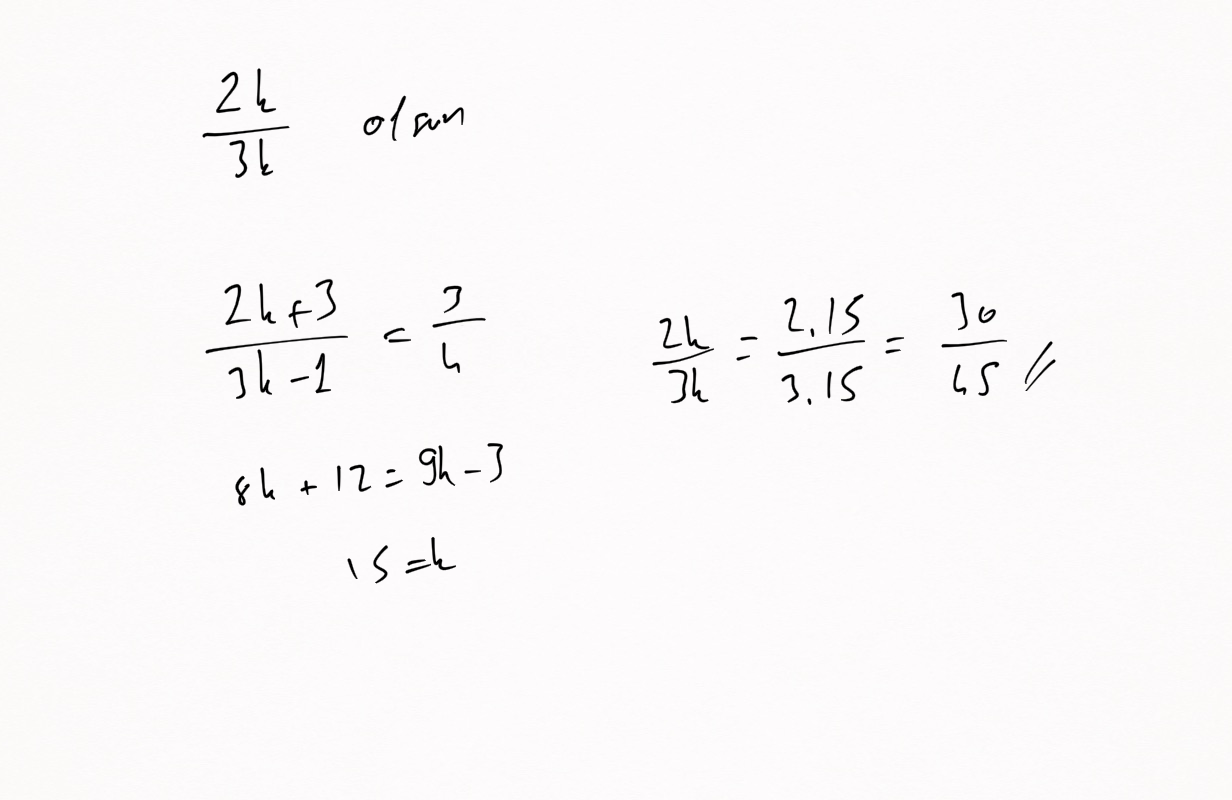 2k/3k olsun
(2k+3)/(3k-1) = 3/4
8k + 12 = 9k - 3
15 = k
2k/3k = 2.15/3.15 = 30/45 //